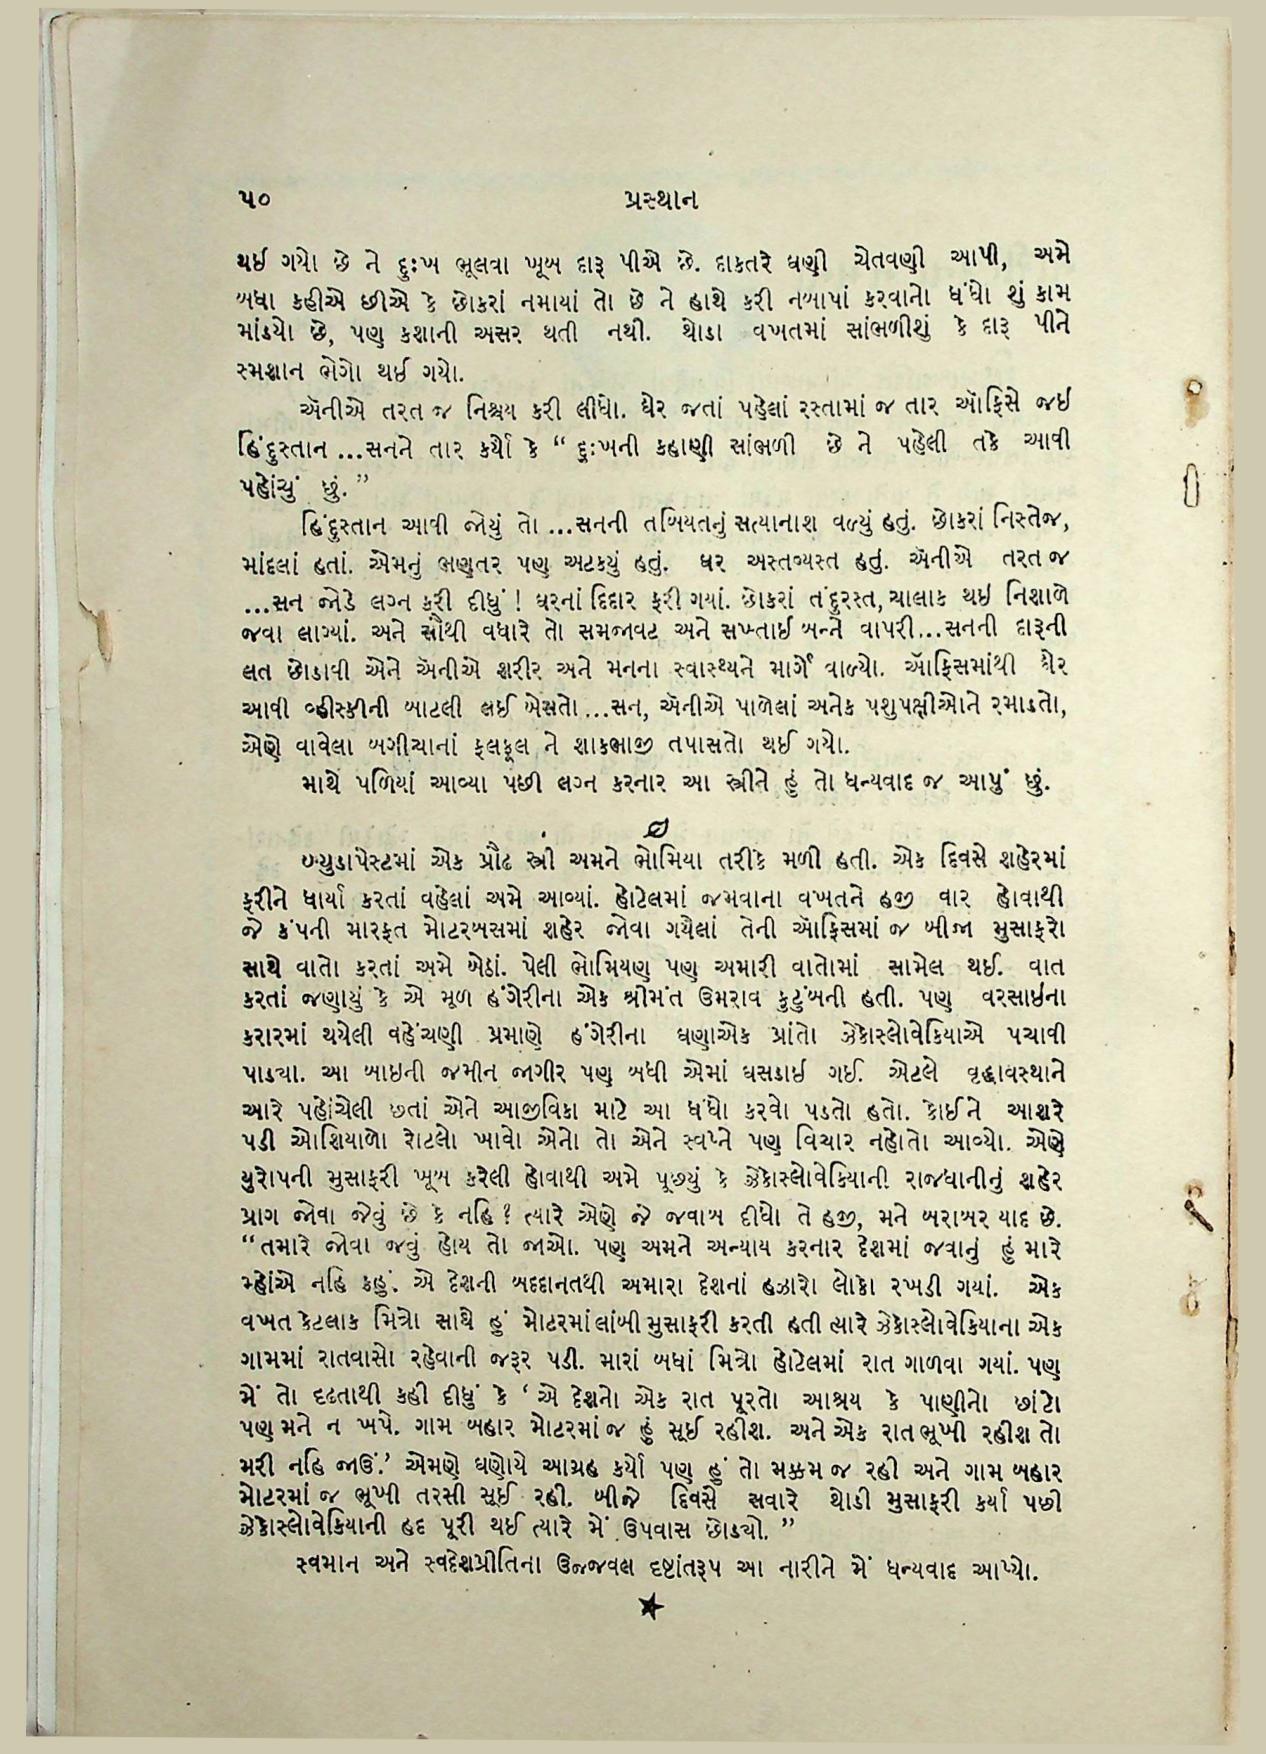 ૫૦ પ્રસ્થાન
થઈ ગયો છે ને દુઃખ ભૂલવા ખૂબ દારૂ પીએ છે. દાક્તરે ઘણી ચેતવણી આપી, અમે
બધા કહીએ છીએ કે છોકરાં નમાયાં તો છે ને હાથે કરી નબાપાં કરવાનો ધંધો શું કામ
માંડયો છે, પણ કશાની અસર થતી નથી. થોડા વખતમાં સાંભળીશું કે દારૂ પીને
સ્મશાન ભેગો થઈ ગયો.
ઍનીએ તરત જ નિશ્ચય કરી લીધો. ઘેર જતાં પહેલાં રસ્તામાં જ તાર ઑફિસે જઇ
હિંદુસ્તાન ...સનને તાર કર્યો કે “ દુઃખની કહાણી સાંભળી છે ને પહેલી તકે આવી
પહોંચું છું. ”
હિંદુસ્તાન આવી જોયું તો ...સનની તબિયતનું સત્યાનાશ વળ્યું હતું. છોકરાં નિસ્તેજ,
માંદલાં હતાં. એમનું ભણતર પણ અટકયું હતું. ઘર અસ્તવ્યસ્ત હતું. ઍનીએ તરત જ
...સન જોડે લગ્ન કરી દીધું ! ઘરનાં દિદાર ફરી ગયાં. છોકરાં તંદુરસ્ત, ચાલાક થઇ નિશાળે
જવા લાગ્યાં. અને સૌથી વધારે તો સમજાવટ અને સખ્તાઈ બન્ને વાપરી...સનની દારૂની
લત છોડાવી એને ઍનીએ શરીર અને મનના સ્વાસ્થ્યને માર્ગે વાળ્યો. ઑફિસમાંથી ઘેર
આવી વ્હીસ્કીની બાટલી લઈ બેસતો ...સન, ઍનીએ પાળેલાં અનેક પશુપક્ષીઓને રમાડતો,
એણે વાવેલા બગીચાનાં ફલફૂલ ને શાકભાજી તપાસતો થઈ ગયો.
માથે પળિયાં આવ્યા પછી લગ્ન કરનાર આ સ્ત્રીને હું તો ધન્યવાદ જ આપું છું.
બ્યુડાપેસ્ટમાં એક પ્રૌઢ સ્ત્રી અમને ભોમિયા તરીકે મળી હતી. એક દિવસે શહેરમાં
ફરીને ધાર્યા કરતાં વહેલાં અમે આવ્યાં. હોટેલમાં જમવાના વખતને હજી વાર હોવાથી
જે કંપની મારફત મોટરબસમાં શહેર જોવા ગયેલાં તેની ઑફિસમાં જ બીજા મુસાફરો
સાથે વાતો કરતાં અમે બેઠાં. પેલી ભોમિયણ પણ અમારી વાતોમાં સામેલ થઈ. વાત
કરતાં જણાયું કે એ મૂળ હંગેરીના એક શ્રીમંત ઉમરાવ કુટુંબની હતી. પણ વરસાઇના
કરારમાં થયેલી વહેંચણી પ્રમાણે હંગેરીના ઘણાએક પ્રાંતો ઝેકોસ્લોવેકિયાએ પચાવી
પાડયા. આ બાઇની જમીન જાગીર પણ બધી એમાં ઘસડાઇ ગઈ. એટલે વૃદ્ધાવસ્થાને
આરે પહોંચેલી છતાં એને આજીવિકા માટે આ ધંધો કરવો પડતો હતો. કોઈને આશરે
પડી ઓશિયાળો રોટલો ખાવો એનો તો એને સ્વપ્ને પણ વિચાર નહોતો આવ્યો. એણે
યુરોપની મુસાફરી ખૂબ કરેલી હોવાથી અમે પૂછયું કે ઝેકોસ્લોવેકિયાની રાજધાનીનું શહેર
પ્રાગ જોવા જેવું છે કે નહિ? ત્યારે એણે જે જવાબ દીધો તે હજી, મને બરાબર યાદ છે.
“તમારે જોવા જવું હોય તો જાઓ. પણ અમને અન્યાય કરનાર દેશમાં જવાનું હું મારે
મ્હોંએ નહિ કહું. એ દેશની બદદાનતથી અમારા દેશનાં હઝારો લોકો રખડી ગયાં. એક
વખત કેટલાક મિત્રો સાથે હું મોટરમાં લાંબી મુસાફરી કરતી હતી ત્યારે ઝેકોસ્લોવેકિયાના એક
ગામમાં રાતવાસો રહેવાની જરૂર પડી. મારાં બધાં મિત્રો હોટેલમાં રાત ગાળવા ગયાં. પણ
મેં તો દઢતાથી કહી દીધું કે ‘ એ દેશનો એક રાત પૂરતો આશ્રય કે પાણીનો છાંટો
પણ મને ન ખપે. ગામ બહાર મોટરમાં જ હું સૂઈ રહીશ. અને એક રાત ભૂખી રહીશ તો
મરી નહિ જાઉં.’ એમણે ઘણોયે આગ્રહ કર્યો પણ હું તો મક્કમ જ રહી અને ગામ બહાર
મોટરમાં જ ભૂખી તરસી સૂઈ રહી. બીજે દિવસે સવારે થોડી મુસાફરી કર્યા પછી
ઝેકોસ્લોવેકિયાની હદ પૂરી થઈ ત્યારે મેં ઉપવાસ છોડયો. ”
સ્વમાન અને સ્વદેશપ્રીતિના ઉજ્જવલ દષ્ટાંતરૂપ આ નારીને મેં ધન્યવાદ આપ્યો.